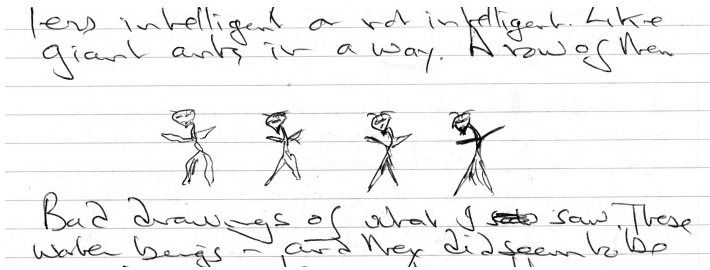 less intelligent or not intelligent. Like
giant ants in a way. A row of them
Bad drawings of what I saw. These
water beings – and they did seem to be